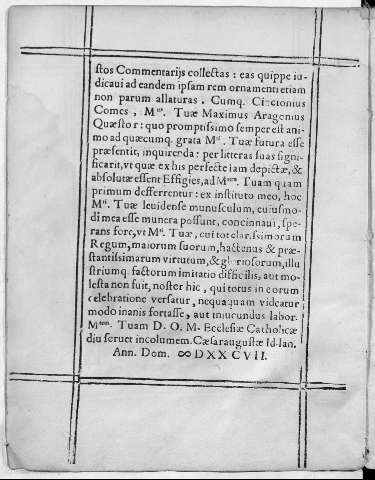 ſtos Commentarijs collectas : eas quippe iu-
dicaui ad eandem ipſam rem ornamenti etiam
non parum allaturas . Cumq. Cinctonius
Comes , M.ᵗⁱˢ. Tuæ Maximus Aragenius
Quæſtor : quo promptiſsimo ſemper eſt ani-
mo ad quæcumq. grata M.ᵗⁱ. Tuæ futura eſſe
præſentit, inquirenda : per litteras ſuas ſigni-
ficarit, vt quæ ex his perfectè iam depictæ, &
abſolutæ eſſent Effigies, ad M.ᵗᵉᵐ. Tuam quam
primum deſferrentur : ex inſtituto meo, hoc
M.ᵗⁱ. Tuæ leuidenſe munuſculum, cuiuſmo-
di mea eſſe munera poſſunt, concinnaui, ſpe-
rans fore, vt M.ᵗⁱ. Tuæ, cui tot clariſsimorum
Regum, maiorum ſuorum, hactenus & præ-
ſtantiſsimarum virtutum, & glorioſorum, illu
ſtriumq. factorum imitatio difficilis, aut mo-
leſta non fuit, noſter hic, qui totus in eorum
celebratione verſatur, nequaquam videatur
modo inanis fortaſſe, aut iniucundus labor.
M.ᵗᵉᵐ. Tuam D. O. M. Eccleſiæ Catholicæ
diu ſeruet incolumem. Cæſarauguſtæ Id. Ian.
Ann. Dom. ∞DXXCVII.